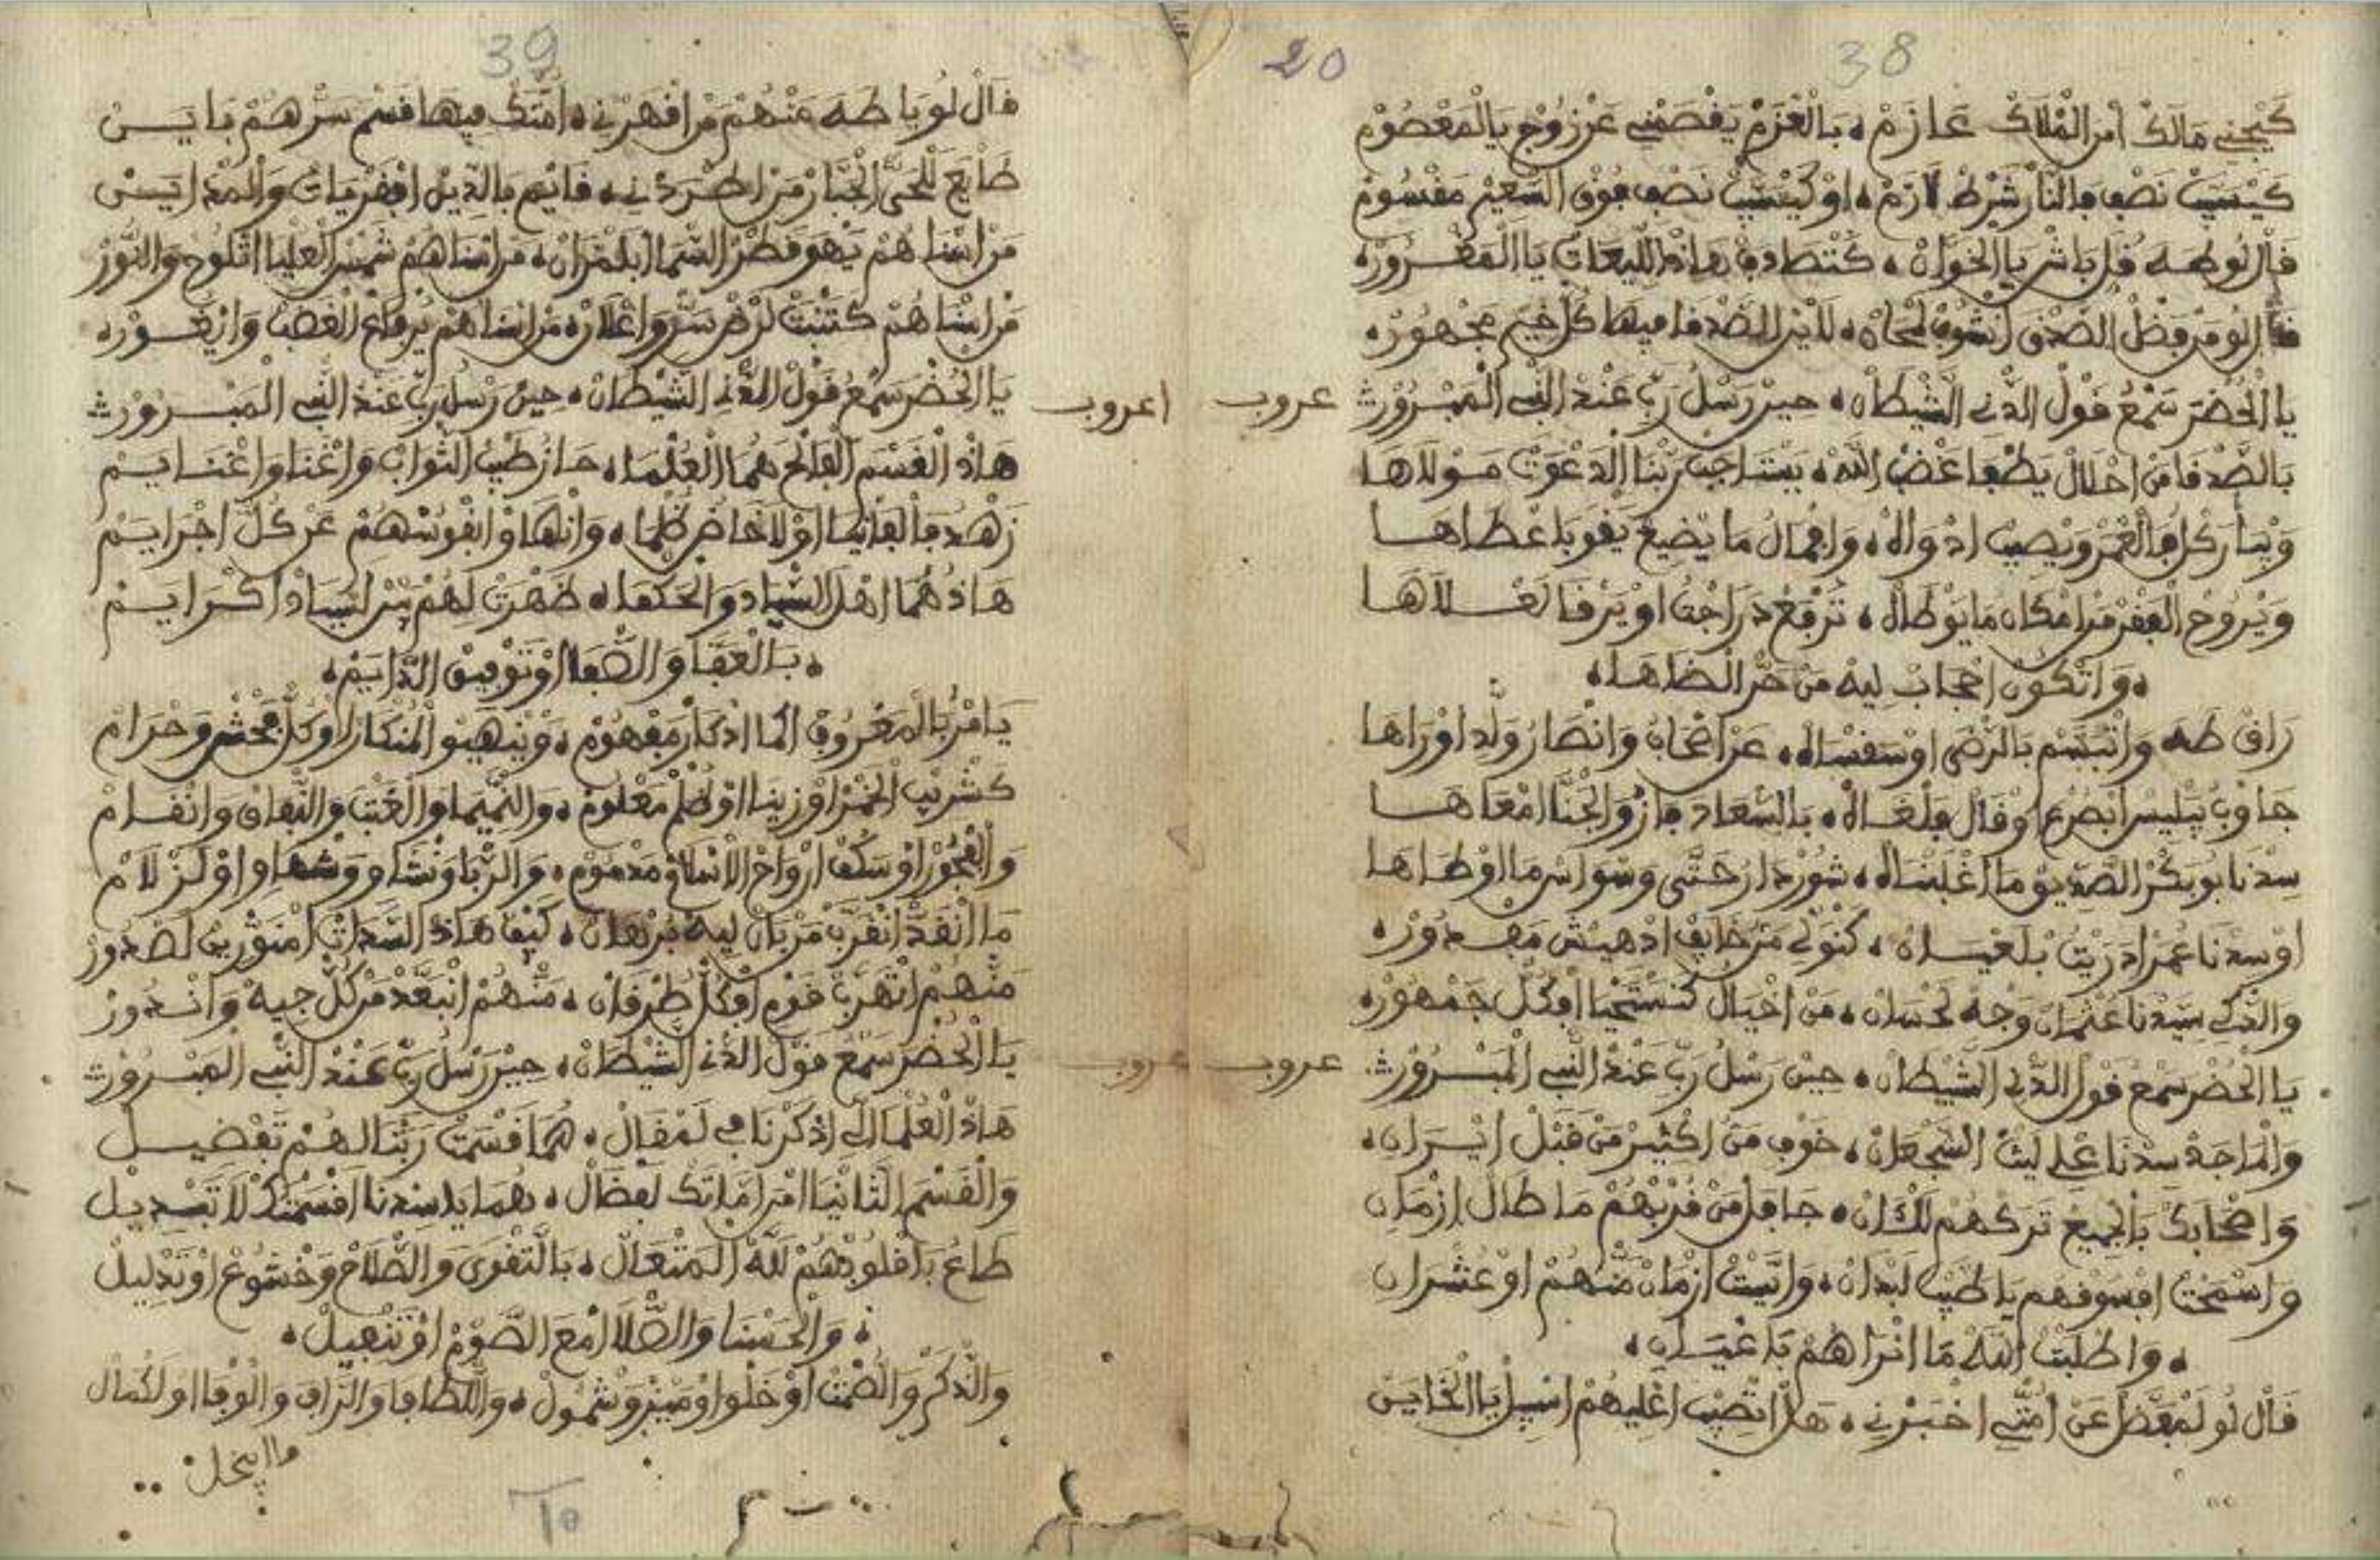 38
20
كَيْجِينِي مَالَكْ أمر الْمْلَاكْ عَازَمْ ، بَالْعَزَمْ يَقْصَمْنِي عَنْ زُوجْ يَا الْمَعْصُومْ
كَيْسَيَّبْ نَصْفِ فَالنَّارْ شَرْطْ لَازَمْ ، اوْ كَيْسَيَّبْ نَصْفِ فُوقْ السَّعِيرْ مَقْسُومْ
قَالْ لُو طه قُل بَاشْ يَا الْخَوَّانْ ، كَتْصَادفْ هَاذْ اللِّيعَاتْ يَا الْمَغْرُورْ ،
قَالْ لُو مَنْ فَضْل الصَّدْقَ نْشُوفْ مْحَانْ ، لَايَنْ الصَّدْقَا فِيهَا كُلْ خَيرْ مَجْهُورْ ،
يَا الْحُضَّرْ سَمْعُ قَوْلْ الدَّنِي الشِّيطَانْ ، حِينْ رَسْلُ رَبِّ عَنْدْ النَّبِي الْمَبْرُورْ
عروب
بَالصَّدْقَا مَنْ احْلَالْ يَطْفَا غَضْبْ اللهْ ، يَسْتَاجَبْ رَبْنَا الدَّعْوَتْ مَوْلَاهَا
وَيْبَارَكْ لُ فَالْعْمَرْ وَيْصِيبْ ادْوَاهْ ، وَافْمَالُ مَا يْضِيعْ يَقْوَ بَاعْطَاهَا
وَيْرُوحْ الْفْقَرْ مَنْ امْكَانْ مَا يَوْطَاهْ ، تَرْفَعْ دَرَاجْتُ اوْ يَرْقَا لَعْلَاهَا
، وَاتْكُونْ احْجَابْ لِيهْ مَنْ حَرّْ الْظَاهَا ،
رَاقْ طه وَاتْبَسَّمْ بَالرّْضَى اوْ سَقْسَاهْ ، عَنْ اصْحَابُ وَانْصَارُ وَلَّد اوْرَاهَا
جَاوْبُ يَبْلِيسْ ابْصُرْعْ اوْ قَالْ فَلْغَاهْ ، بَالسَّعَادَ فَازُ وَالْجَنَّا امْعَاهَا
سِدْنَا بُوبَكْرْ الصِّدِيقْ مَا اغْلَبْنَاهْ ، شُورْ دَارُ حَتَّى وَسْوَاسْ مَا اوْطَاهَا
اوْ سِدْنَا عُمَرْ ادَرَيْتُ بْلَعْيَانْ ، كَنْوَلِّي مَنْ خَايَفْ ادْهِيشْ مَفْدُورْ ،
وَالزَّكِي سِيدْنَا عَثْمَانْ وَجْهْ لَحْسَانْ ، مَنْ احْيَاهْ كَنَسْتَحْيَا افْكُلّْ جَمْهُورْ ،
يَا الْحُضَّرْ سَمْعُ قَوْلْ الدَّنِي الشِّيطَانْ ، حِينْ رَسْلُ رَبِّ عَنْدْ النَّبِي الْمَبْرُورْ
عروب
وَالْمَاجَدْ سِدْنَا عْلِي لَيْثْ الشَّجْعَانْ ، خَوْفِ مَنّ اكْثِيرْ مَنْ قَبْلْ النِّيرَانْ ،
وَاصْحَابَكْ بَالْجْمِيعْ تَرَكْهُمْ لَلْكَانْ ، جَافَلْ مَنْ قُرْبْهُمْ مَا طَالْ ازْمَانِ
وَاسْمَحْتْ افْسَوْقْهُمْ يَا طَيَّبْ لَبْدَانْ ، وَايَّسْتْ ازْمَانْ مَنْهُمْ اوْ عُشْرَانِ
، وَاطْلَبْتْ اللهْ مَا انْرَاهُمْ بَاعْيَانِ ،
قَالْ لُو لَمْفَضَّلْ عَنْ امّْتِي اخْبَرْنِي ، هَلْ اتْصِيبْ اعْلِيهُمْ اسْبِيلْ يَا الْخَايَسْ
39
قَالْ لُو يَا طه مَنْهُمْ مَنْ اقْهَرْنِي ، امَّتَكْ فِيهَا قَسْمْ سَرّْهُمْ بَايَسْ
طَايَعْ لَلْحَيّْ الْجَبَّارْ مَنْ اطْرَدْنِي ، قَايَمْ بَالدِّينْ افْقَرْيَاتْ وَالْمْدَايَسْ
مَنْ انْسَاهُمْ يَهْوَ قَطْرْ السّْمَا ابْلَمْزَانْ ، مَنْ انْسَاهُمْ شَمْسْ الْعَلْيَا اتْلُوحْ وَالنُّورْ
مَنْ انْسَاهُمْ كَتَنْبَتْ لَرْضْ سَرّْ وَاعْلَانْ ، مَنْ انْسَاهُمْ يُرْفَاعْ الْغَضَبْ وَايْغُورْ ،
يَا الْحُضَّرْ سَمْعُ قَوْلْ الدَّنِي الشِّيطَانْ ، حِينْ رَسْلُ رَبِّ عَنْدْ النَّبِي الْمَبْرُورْ
اعروب
هَاذْ الْقَسْمْ الْفَالَحْ هُمَا الْعُلْمَا ، حَازُ طَيَّبْ الثّْوَابْ وَاغْنَا وَاغْنَايَمْ
زَهْدُ فَالْفَانْيَا اوْ لَا خَاضُ ظُلْمَا ، وَانْهَاوْ انْفُوسْهُمْ عَنْ كُلّْ اجْرَايَمْ
هَاذُ هُمَا اهْلْ السّْيَادَ وَالْحَكْمَا ، ظَهْرَتْ لَهُمْ بَيْنْ لَسْيَادْ اكْرَايَمْ
، بَالْعَفَّا وَالصّْفَا اوْ تَوْفِيقْ الدَّايَمْ ،
يَامْرُ بَالْمَعْرُوفْ اكْمَا اذْكَارْ مَفْهُومْ ، وَيْنَهِيوْ الْمُنْكَارْ اوْ كُلّْ مَحْشُ وَحْرَامْ
كَشْرِيبْ الْخْمَرْ اوْ زِينَا اوْ ظُلْمْ مَعْلُومْ ، وَالنّْمِيمَا وَالْغْتَبْ وَالنّْفَاقْ وَانْقَامْ
وَالْفْجُورْ اوْ سَفْكْ ارْوَاحْ الْانْسَاقْ مَدْمُومْ ، وَالرّْبَا وَنْشَا وَوْشْهَا وَاوْ لَزْلَامْ
مَا انْقَدّْ انْقَرَّبْ مَنْ بَانْ لِيهْ بُرْهَانْ ، كَيْفْ هَاذْ السَّدَاتْ امْنَوّْرِينْ لَصْدُورْ
مَنْهُمْ انْهَرَّبْ قَوْمِ افْكُلّْ طُرْقَانْ ، مَنْهُمْ انْبَعَّدْ مَنْ كُلّْ جِيهْ وَانْدُورْ
يَا الْحُضَّرْ سَمْعُ قَوْلْ الدَّنِي الشِّيطَانْ ، حِينْ رَسْلُ رَبِّ عَنْدْ النَّبِي الْمَبْرُورْ
عروب
هَاذْ الْعُلْمَا الِّي اذْكَرْنَا فِي لَمْقَالْ ، هُمَا قَسْمَتْ رَبْنَا لَهُمْ تَفْضِيلْ
وَالْقَسْمْ الثَّانْيَا امْنْ امَّاتَكْ لَفْضَالْ ، هُمَا يَا سِدْنَا اقْسَمْتَكْ لَا تَبْدِيلْ
طَاعُ بَاقْلُوبْهُمْ للهْ الْمَتْعَالْ ، بَالتَّقْوَى وَالصّْلَاحْ وَخْشُوعْ اوْ تَدْلِيلْ
، وَالْحَسْنَا وَالصّْلَا امْعَ الصَّوْمْ اوْ تَنْفِيلْ ،
وَالذّْكَرْ وَالصَّمْتْ اوْ خَلْوَا اوْ مَيْزْ وَشْمُولْ ، وَاللّْطَافَا وَالرَّافَ وَالْوْفَا اوْ لَكْمَالْ